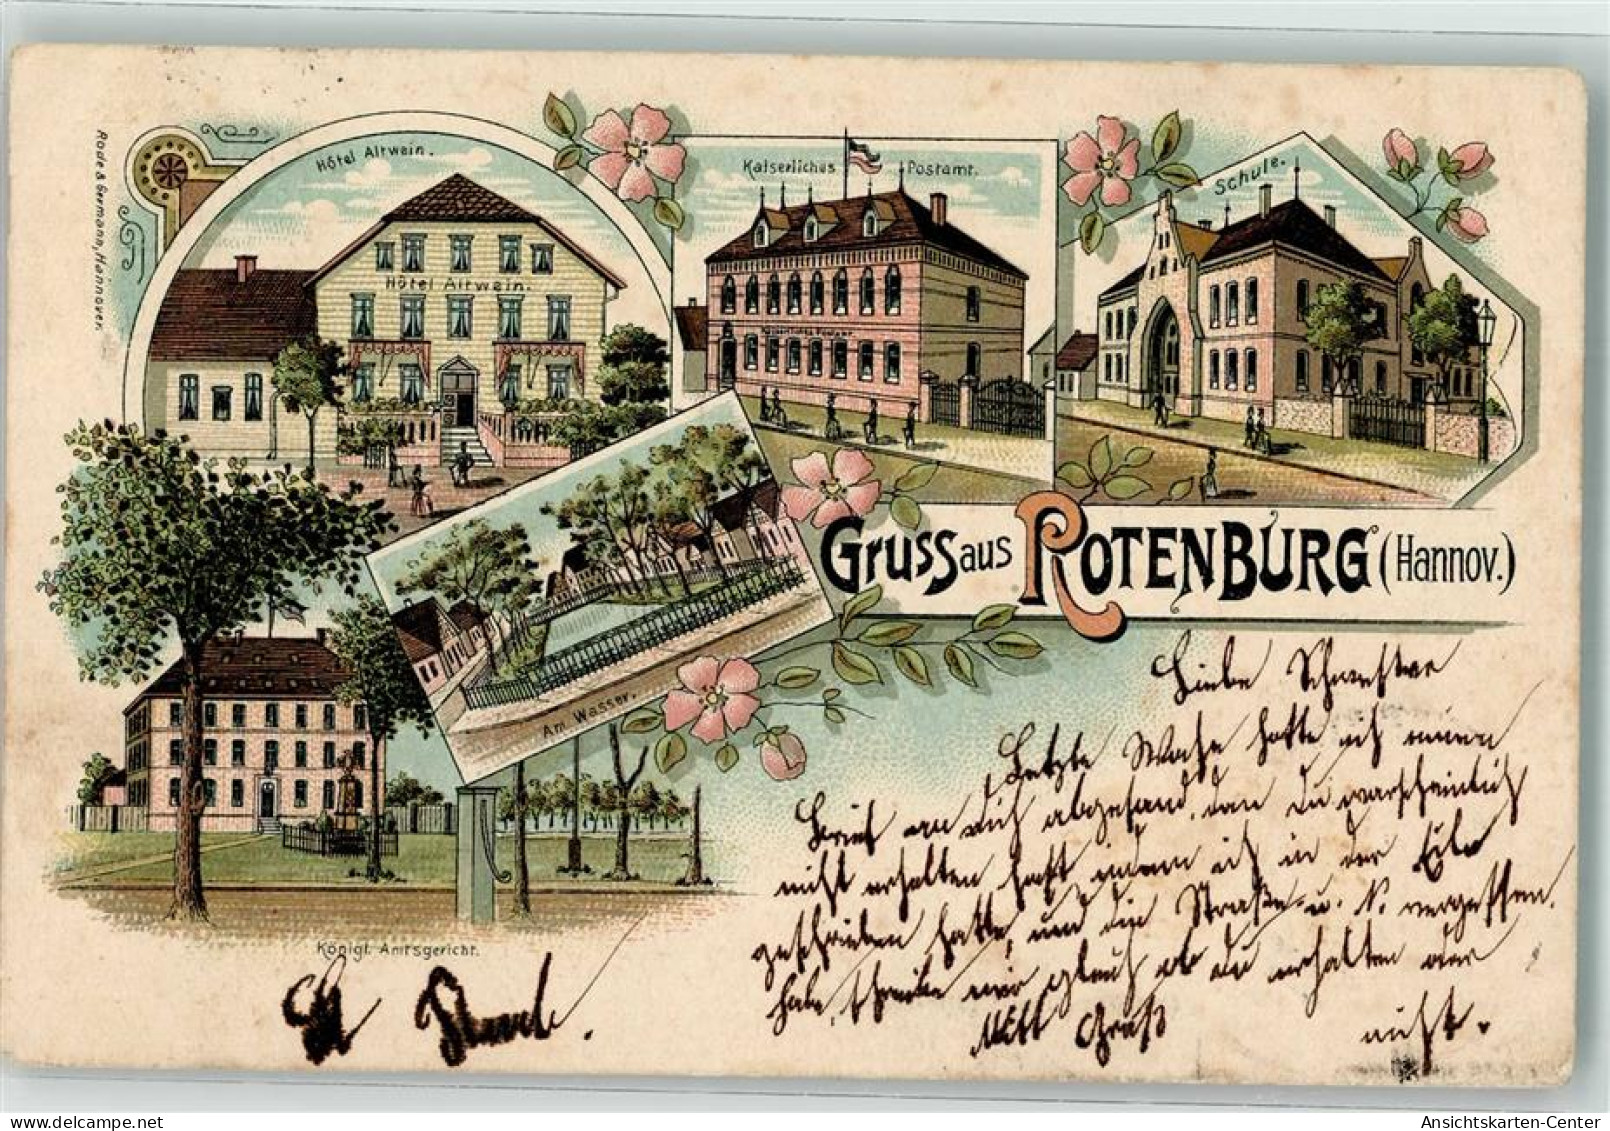 Rode & Germann, Hannover.
Hôtel Altwein.
Hôtel Altwein.
Kaiserliches Postamt.
Schule.
Am Wasser.
Gruss aus ROTENBURG (Hannov.)
Königl. Amtsgericht.
Liebe Schwester
Letzte Woche hatte ich einen
Brief an dich abgesand, den Du warscheinlich
nicht erhalten hast indem ich in der Eile
geschrieben hatte, und die Straße u. N. vergessen.
habe, schreibe mir gleich ob Du erhalten oder
Mitt Gruß nicht.
Ansichtskarten-Center